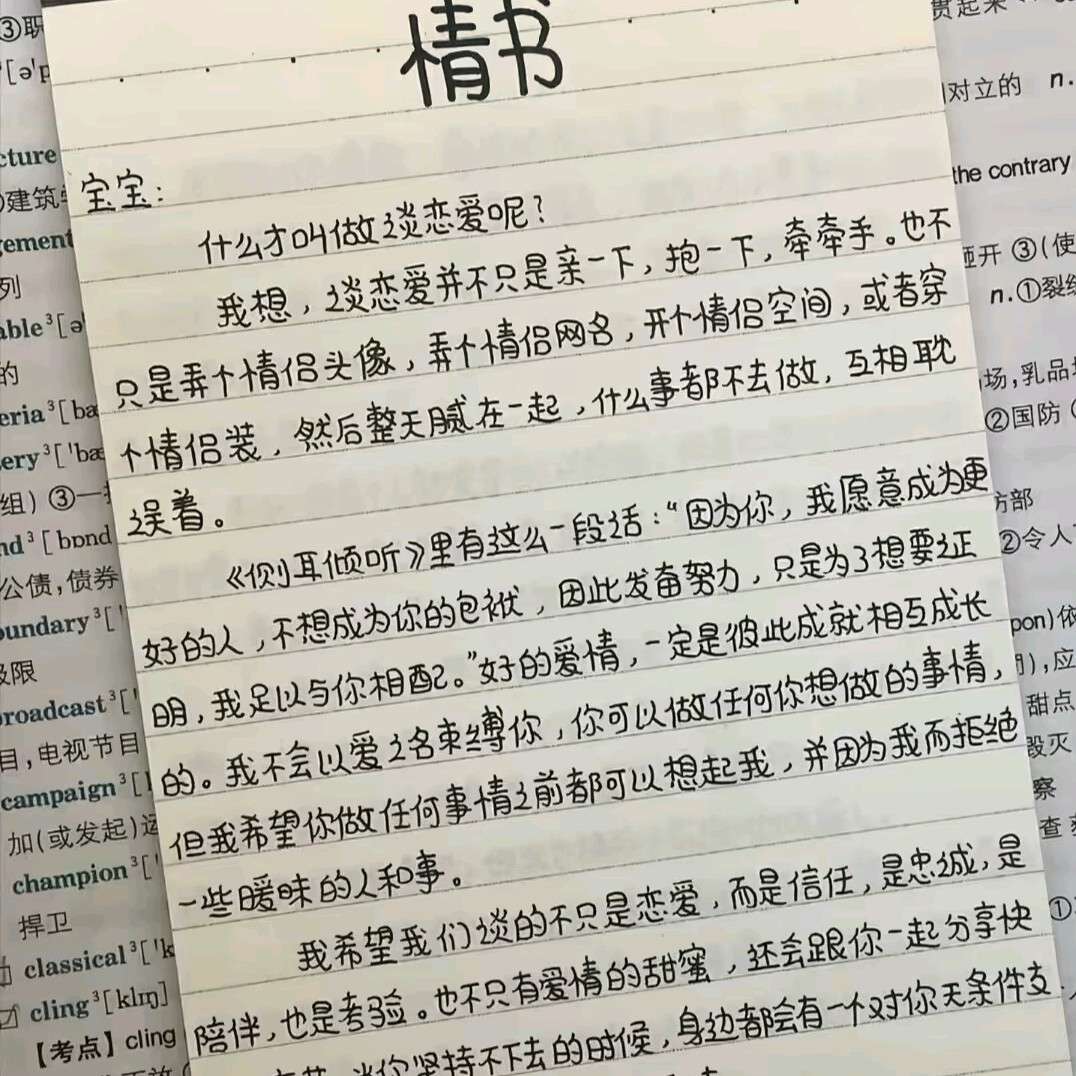 情书
宝宝：
什么才叫做谈恋爱呢？
我想，谈恋爱并不只是亲一下，抱一下，牵牵手。也不
只是弄个情侣头像，弄个情侣网名，开个情侣空间，或者穿
个情侣装，然后整天腻在一起，什么事都不去做，互相耽
误着。
《侧耳倾听》里有这么一段话：“因为你，我愿意成为更
好的人，不想成为你的包袱，因此发奋努力，只是为了想要证
明，我足以与你相配。”好的爱情，一定是彼此成就相互成长
的。我不会以爱之名束缚你，你可以做任何你想做的事情，
但我希望你做任何事情之前都可以想起我，并因为我而拒绝
一些暖味的人和事。
我希望我们谈的不只是恋爱，而是信任，是忠诚，是
陪伴，也是考验。也不只有爱情的甜蜜，还会跟你一起分享快
当你坚持不下去的时候，身边都会有一个对你无条件支
③职
cture
①建筑
gement
列
able³[ə
的
eria³[bə
ery³['bæ
组) ③一
nd³[bɒnd
公债,债券
oundary³['
极限
roadcast³['
目,电视节目
campaign³[
加(或发起)运
champion³['
捍卫
classical³['k
cling³[klɪŋ]
【考点】cling
贯起来
对立的 n.
the contrary
砸开 ③(使
n.①裂
场,乳品
②国防
防部
②令人
pon)依
),应
甜点
毁灭
察
查
①